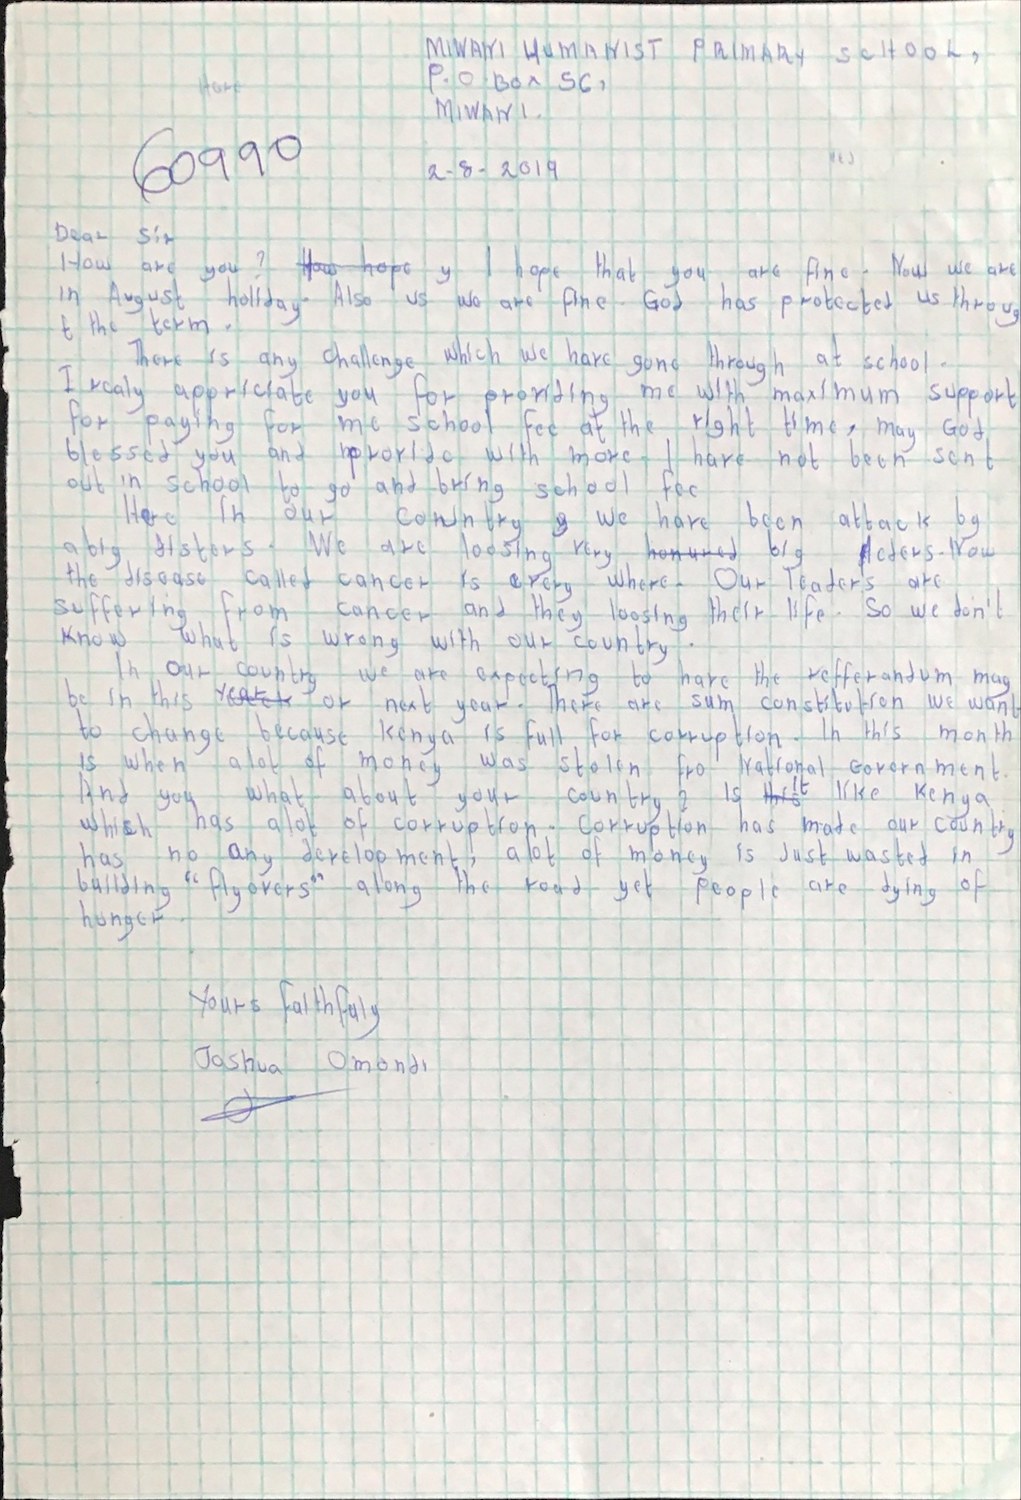 MIWANI HUMANIST PRIMARY SCHOOL,
P.O BOX 56,
MIWANI.
60990
2-8-2019
Dear Sir
How are you? How hope y I hope that you are fine. Now we are
in August holiday. Also us we are fine. God has protected us throug
t the term.
There is any challenge which we have gone through at school.
I realy appriciate you for providing me with maximum support
for paying for me school fee at the right time, may God
blessed you and provide with more. I have not been sent
out in school to go and bring school fee
Here in our country we have been attack by
abig disters. We are loosing very honured big lders. Now
the disease called cancer is every where. Our leaders are
suffering from cancer and they loosing their life. So we don't
know what is wrong with our country.
In our country we are expecting to have the refferandum may
be in this year or next year. There are sum constitution we want
to change because Kenya is full for corruption. In this month
is when alot of money was stolen fro National Government.
And you what about your country? Is it like Kenya
which has alot of corruption. Corruption has made our country
has no any development, alot of money is Just wasted in
building "flyovers" along the road yet people are dying of
hunger.
Yours faithfuly
Joshua Omondi